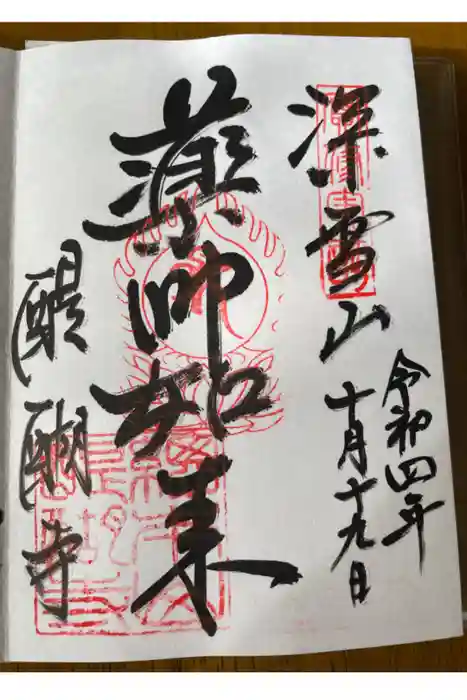 深雪山
令和四年
十月十九日
薬師如来
醍醐寺